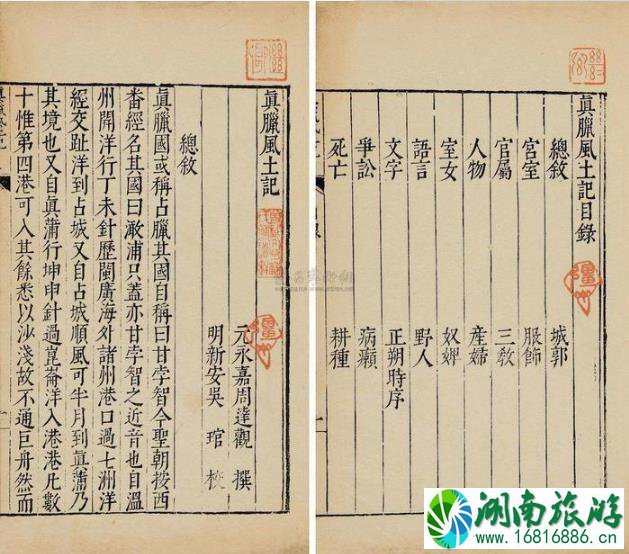 眞臘風土記目錄
總敘 城郭
宮室 服飾
官屬 三教
人物 產婦
室女 奴婢
語言 野人
文字 正朔時序
爭訟 病癩
死亡 耕種
眞臘風土記
元永嘉周達觀 撰
明新安吳琯 校
總敘
眞臘國或稱占臘其國自稱曰甘孛智今聖朝按西
番經名其國曰澉浦只蓋亦甘孛智之近音也自溫
州開洋行丁未針歷閩廣海外諸州港口過七洲洋
經交趾洋到占城又自占城順風可半月到眞蒲乃
其境也又自眞蒲行坤申針過崑崙洋入港港凡數
十惟第四港可入其餘悉以沙淺故不通巨舟然而
湖南旅游
www.16816886.cn